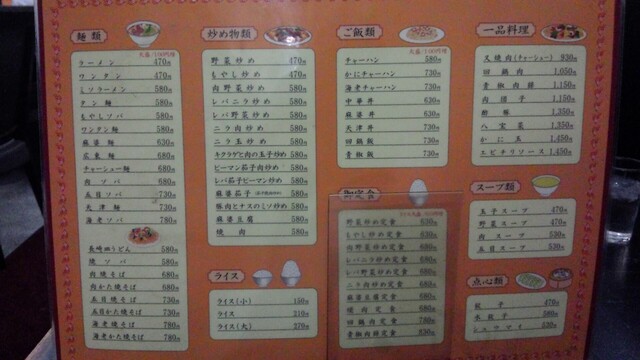 麺類
大盛/100円増
ラーメン 470円
ワンタン 470円
ミソラーメン 580円
タン麺 580円
もやしソバ 580円
ワンタン麺 580円
麻婆麺 630円
広東麺 680円
チャーシュー麺 680円
肉ソバ 680円
五目ソバ 730円
天津麺 730円
海老ソバ 780円
長崎皿うどん 680円
焼ソバ 580円
肉焼そば 680円
肉かた焼そば 680円
五目焼そば 730円
五目かた焼そば 730円
海老焼そば 780円
海老かた焼そば 780円
炒め物類
野菜炒め 470円
もやし炒め 470円
肉野菜炒め 580円
レバニラ炒め 580円
レバ野菜炒め 580円
ニラ肉炒め 580円
ニラ玉炒め 580円
キクラゲと肉の玉子炒め 580円
ピーマン茄子肉炒め 580円
レバ茄子ピーマン炒め 580円
麻婆茄子 580円
豚肉とナスのミソ炒め 580円
麻婆豆腐 580円
焼肉 580円
ライス
ライス(小) 150円
ライス 210円
ライス(大) 270円
ご飯類
大盛/100円増
チャーハン 580円
かにチャーハン 730円
海老チャーハン 730円
中華丼 630円
麻婆丼 630円
天津丼 730円
回鍋飯 730円
青椒飯 730円
御定食
野菜炒め定食 630円
もやし炒め定食 630円
肉野菜炒め定食 680円
レバニラ炒め定食 680円
レバ野菜炒め定食 680円
ニラ肉炒め定食 680円
麻婆豆腐定食 680円
焼肉定食 680円
回鍋肉定食 780円
青椒肉絲定食 830円
一品料理
叉焼肉(チャーシュー) 930円
回鍋肉 1,050円
青椒肉絲 1,150円
肉団子 1,150円
酢豚 1,350円
八宝菜 1,350円
かに玉 1,350円
エビチリソース 1,450円
スープ類
玉子スープ 470円
野菜スープ 470円
肉スープ 530円
五目スープ 530円
点心類
餃子 470円
水餃子 580円
シュウマイ 530円